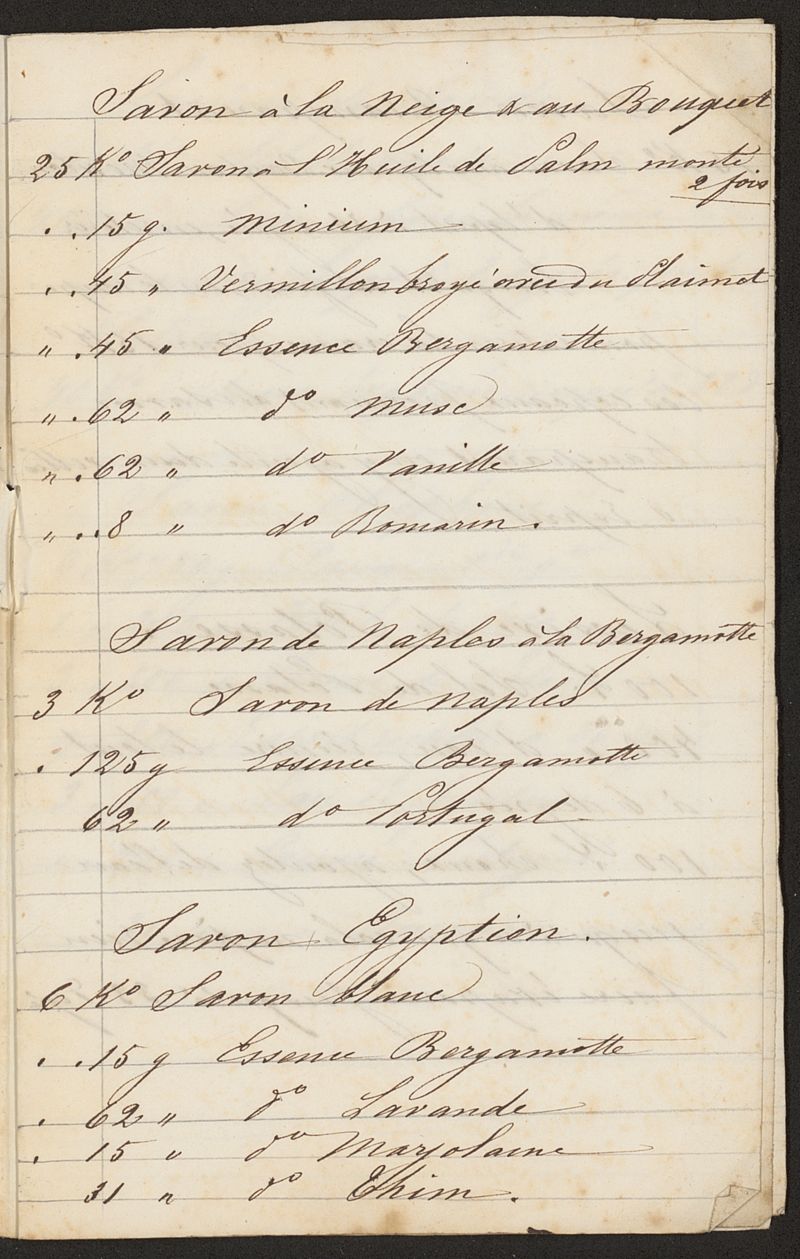 Savon à la Neige & au Bouquet
25 Ko Savon à l'Huile de Palm monté
2 fois
. . 15 g. Minium
. . 45 " Vermillon broyé avec du
" . 45 " Essence Bergamotte
" . 62 " do Musc
" . 62 " do Vanille
" . . 8 " do Romarin.
Savon de Naples à la Bergamotte
3 Ko Savon de Naples
. 125 g Essence Bergamotte
62 " do Portugal
Savon Egyptien.
6 Ko Savon blanc
. . 15 g Essence Bergamotte
. 62 " do Lavande
. 15 " do Marjolaine
31 " do Thim.